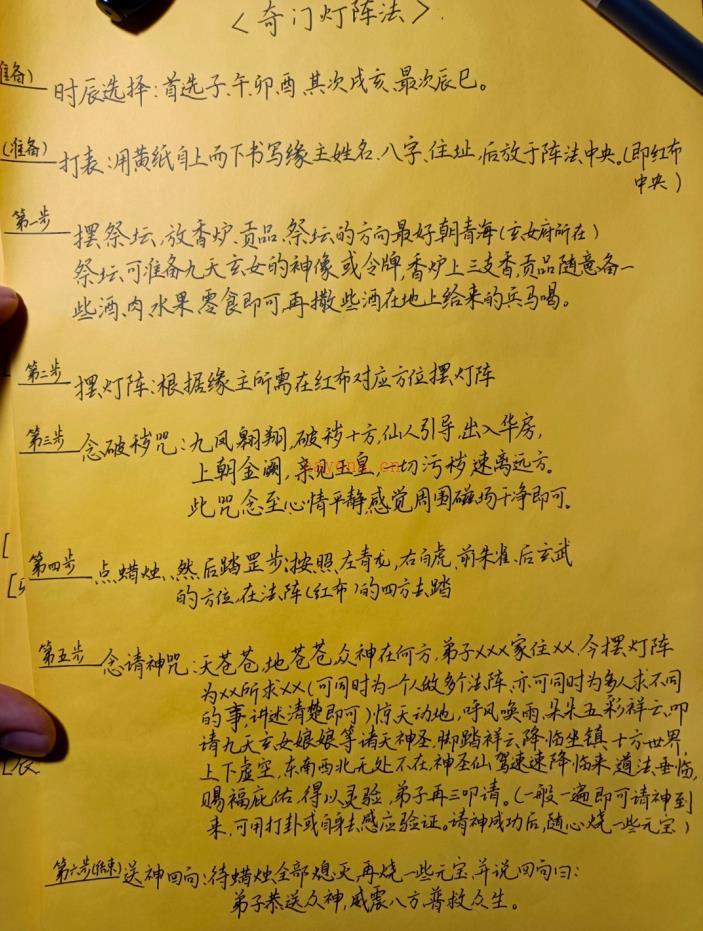 <奇门灯阵法>.
准备)
时辰选择:首选子、午、卯、酉、其次戌亥、最次辰巳。
(准备)
打表:用黄纸自上而下书写缘主姓名、八字、住址,后放于阵法中央。(即红布
中央)
第一步
摆祭坛,放香炉、贡品、祭坛的方向最好朝青海(玄女府所在)
祭坛可准备九天玄女的神像或令牌,香炉上三支香,贡品随意备一
些酒、肉、水果、零食即可,再撒些酒在地上给来的兵马喝。
第二步
摆灯阵:根据缘主所需在红布对应方位摆灯阵
第三步
念破秽咒:九凤翱翔,破秽十方,仙人引导,出入华房,
上朝金阙,亲见玉皇,一切污秽速离远方。
此咒念至心情平静,感觉周围磁场干净即可。
第四步
点蜡烛、然后踏罡步:按照、左青龙,右白虎、前朱雀、后玄武
的方位,在法阵(红布)的四方去踏
第五步
念请神咒:天苍苍,地苍苍,众神在何方,弟子XXX家住XX、今摆灯阵
为XX所求XX(可同时为一个人做多个法阵、亦可同时为多人求不同
的事,讲述清楚即可)惊天动地,呼风唤雨、朵朵五彩祥云、叩
请九天玄女娘娘等诸天神圣、脚踏祥云、降临坐镇、十方世界,
上下虚空,东南西北无处不在,神圣仙驾速速降临来,道法垂临,
赐福庇佑、得以灵验,弟子再三叩请。(一般一遍即可请神到
来、可用打卦或自身去感应验证。请神成功后,随心烧一些元宝)
第六步(结束)
送神回向:待蜡烛全部熄灭,再烧一些元宝,并说回向曰:
弟子恭送众神,威震八方,普救众生。